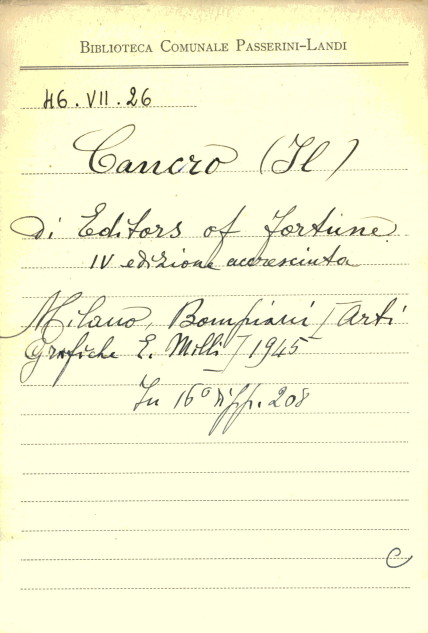 BIBLIOTECA COMUNALE PASSERINI-LANDI
46.VII.26
Cancro (Il)
di Editors of fortune
IV edizione accresciuta
Milano, Bompiani [Arti
Grafiche E. Milli] 1945
In 16° di pp. 208
C